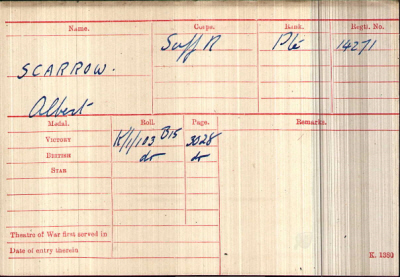 Name. Corps. Rank. Regtl. No.
SCARROW. Suff R Pte 14271
Albert
Medal. Roll. Page. Remarks.
VICTORY K/1/103 B15 3028
BRITISH do do
STAR
Theatre of War first served in
Date of entry therein
K. 1380